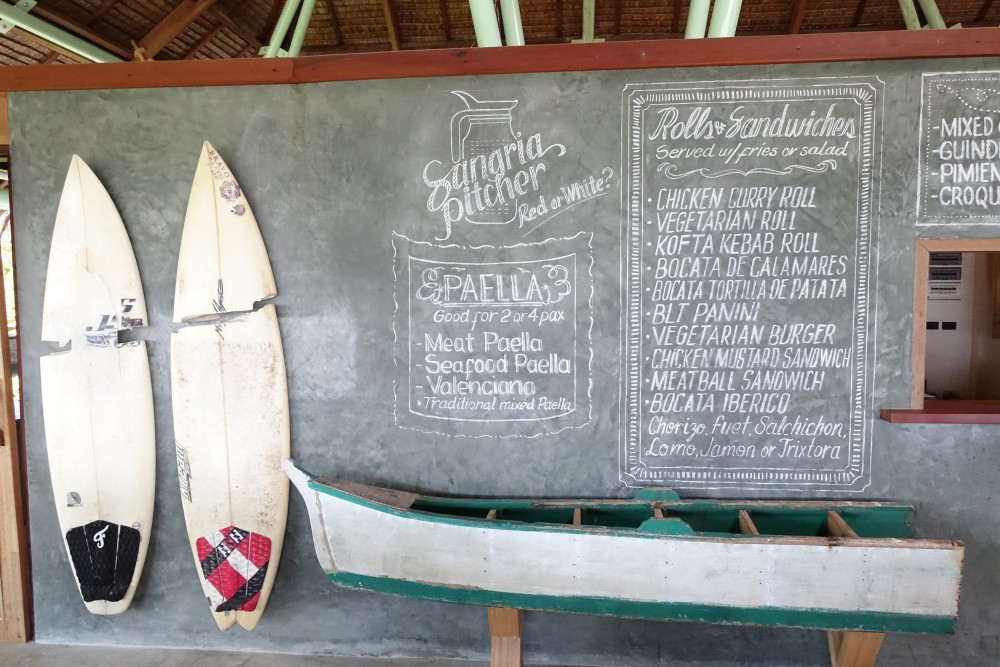 Sangria
pitcher
Red or White?
PAELLA
Good for 2 or 4 pax
- Meat Paella
- Seafood Paella
- Valenciano
• Traditional mixed Paella
Rolls & Sandwiches
Served w/ fries or salad
• CHICKEN CURRY ROLL
• VEGETARIAN ROLL
• KOFTA KEBAB ROLL
• BOCATA DE CALAMARES
• BOCATA TORTILLA DE PATATA
• BLT PANINI
• VEGETARIAN BURGER
• CHICKEN MUSTARD SANDWICH
• MEATBALL SANDWICH
• BOCATA IBERICO
Chorizo, Fuet, Salchichon,
Lomo, Jamon or Trixtora
-MIXED
-GUIND
-PIMIEN
-CROQU
JS